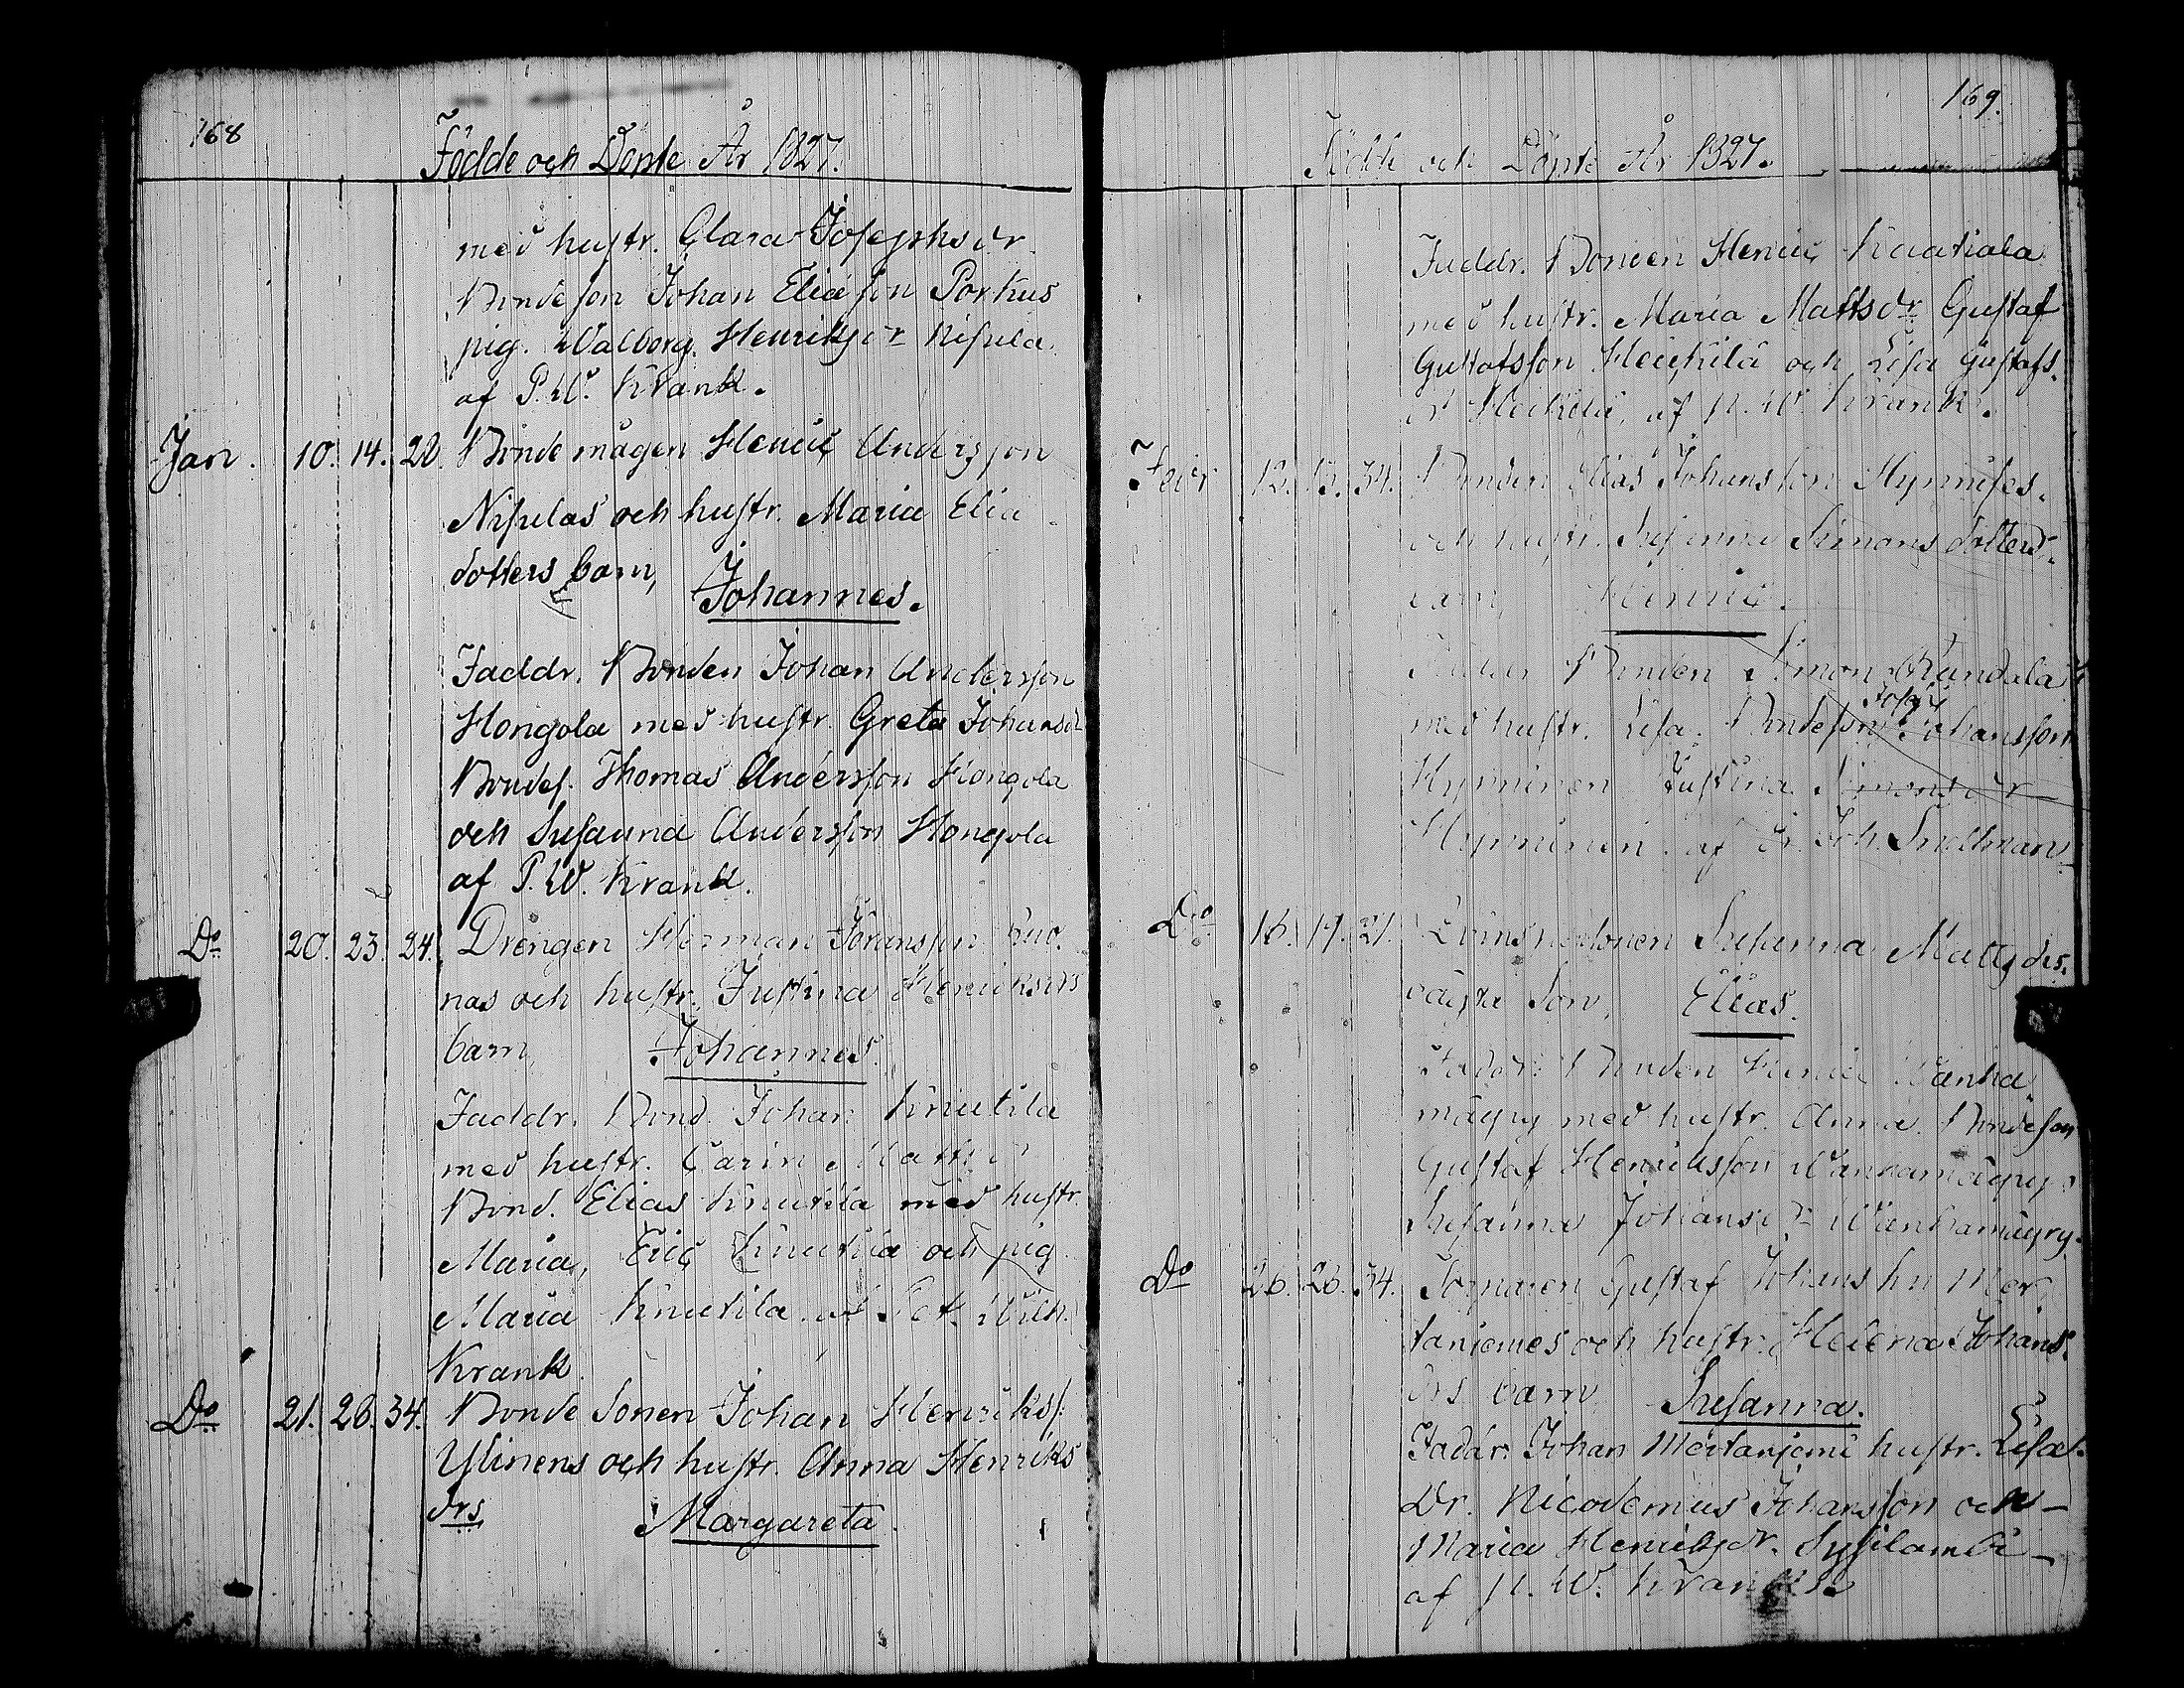 168
Födde och Döpte År 1827.
med hustr. Clara Josephsdr
Bondeson Johan Eliäson Porkus
pig. Walborg Henriksdr Nisula
af P. W. Krank.
Jan. 10. 14. 22. Bondemågen Henric Andersson
Nisulas och hustr. Maria Elia
dotters barn, Johannes.
Faddr. Bonden Johan Andersson
Hongola med hustr. Greta Johansdr
Bondes. Thomas Andersson Hongola
och Susanna Andersson Hongola
af P. W. Krank.
Do 20. 23. 24. Drengen Herman Göransson
nas och hustr. Justina Henriksdrs
barn, Johannes.
Faddr. Bond. Johan Knutila
med hustr. Carin Mattsdr
Bond. Elias Knutila med hustr.
Maria, Eric Knutila och pig
Maria Knutila af Pet. Wilh.
Krank.
Do 21. 26. 34. Bonde Sonen Johan Henrikss:
Ylinens och hustr. Anna Henriks
drs Margareta.
169.
Födde och Döpte År 1827.
Faddr. Bonden Henric Kaatiala
med hustr. Maria Mattsdr Gustaf
Gustafsson Heickilä och Lisa Gustafs.
dr Heikilä, af P. W. Krank.
Febr 12. 13. 34. Bonden Elias Johansson Hynnises.
och hustr. Susanna Simons dotters.
barn, Henric.
Faddr Bonden Simon Rundala
Josef
med hustr. Lisa. Bondeson Johansson
Hynninen Justina Simonsdr
Hynninen. af Joh. Snellman
Do 16. 17. 21. Qvinspersonen Susanna Mattsdrs.
oägta Son, Elias.
Faddr. Bonden Henric Wanha
mägry med hustr. Anna. Bondeson
Gustaf Henriksson Wanhamägry
Susanna Johansdr Wanhamägry.
Do 26. 26. 34. Torparen Gustaf Johansson Mer
taniemes och hustr. Helena Johans.
drs barn Susanna.
Faddr. Johan Mertaniemi hustr. Lisa.
Dr. Nicodemus Johansson och
Maria Henriksdr. Sysilambi
af P. W. Krank.